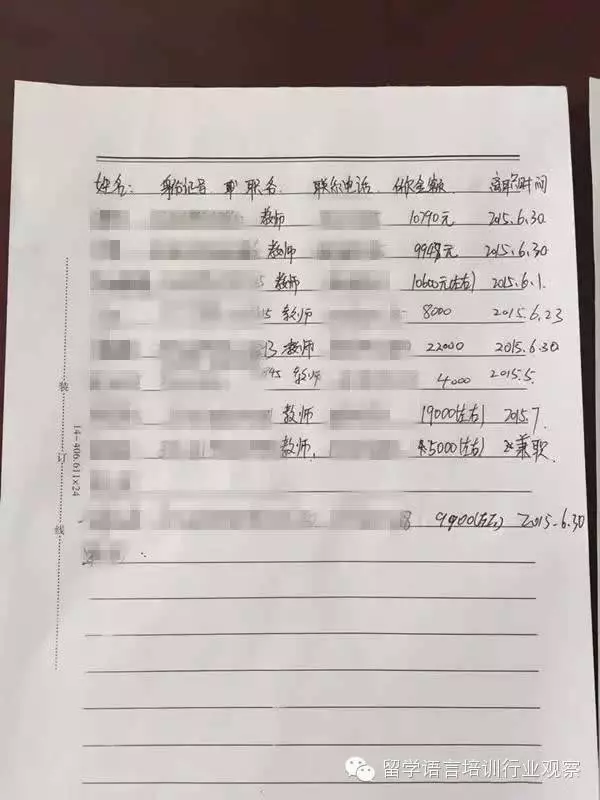 姓名: 身份证号 职名 联系电话 欠金额 离职时间
教师 10790元 2015.6.30
教师 元 2015.6.30
5 教师 10600元(左右) 2015.6.1.
15 教师 8000 2015.6.23
13 教师 22000 2015.6.30
945 教师 4000 2015.5.
教师 19000(左右) 2015.7.
教师. 5000(左右) 兼职
8 9900(左右) 2015.6.30
装
订
线
14-406.611x24
留学语言培训行业观察